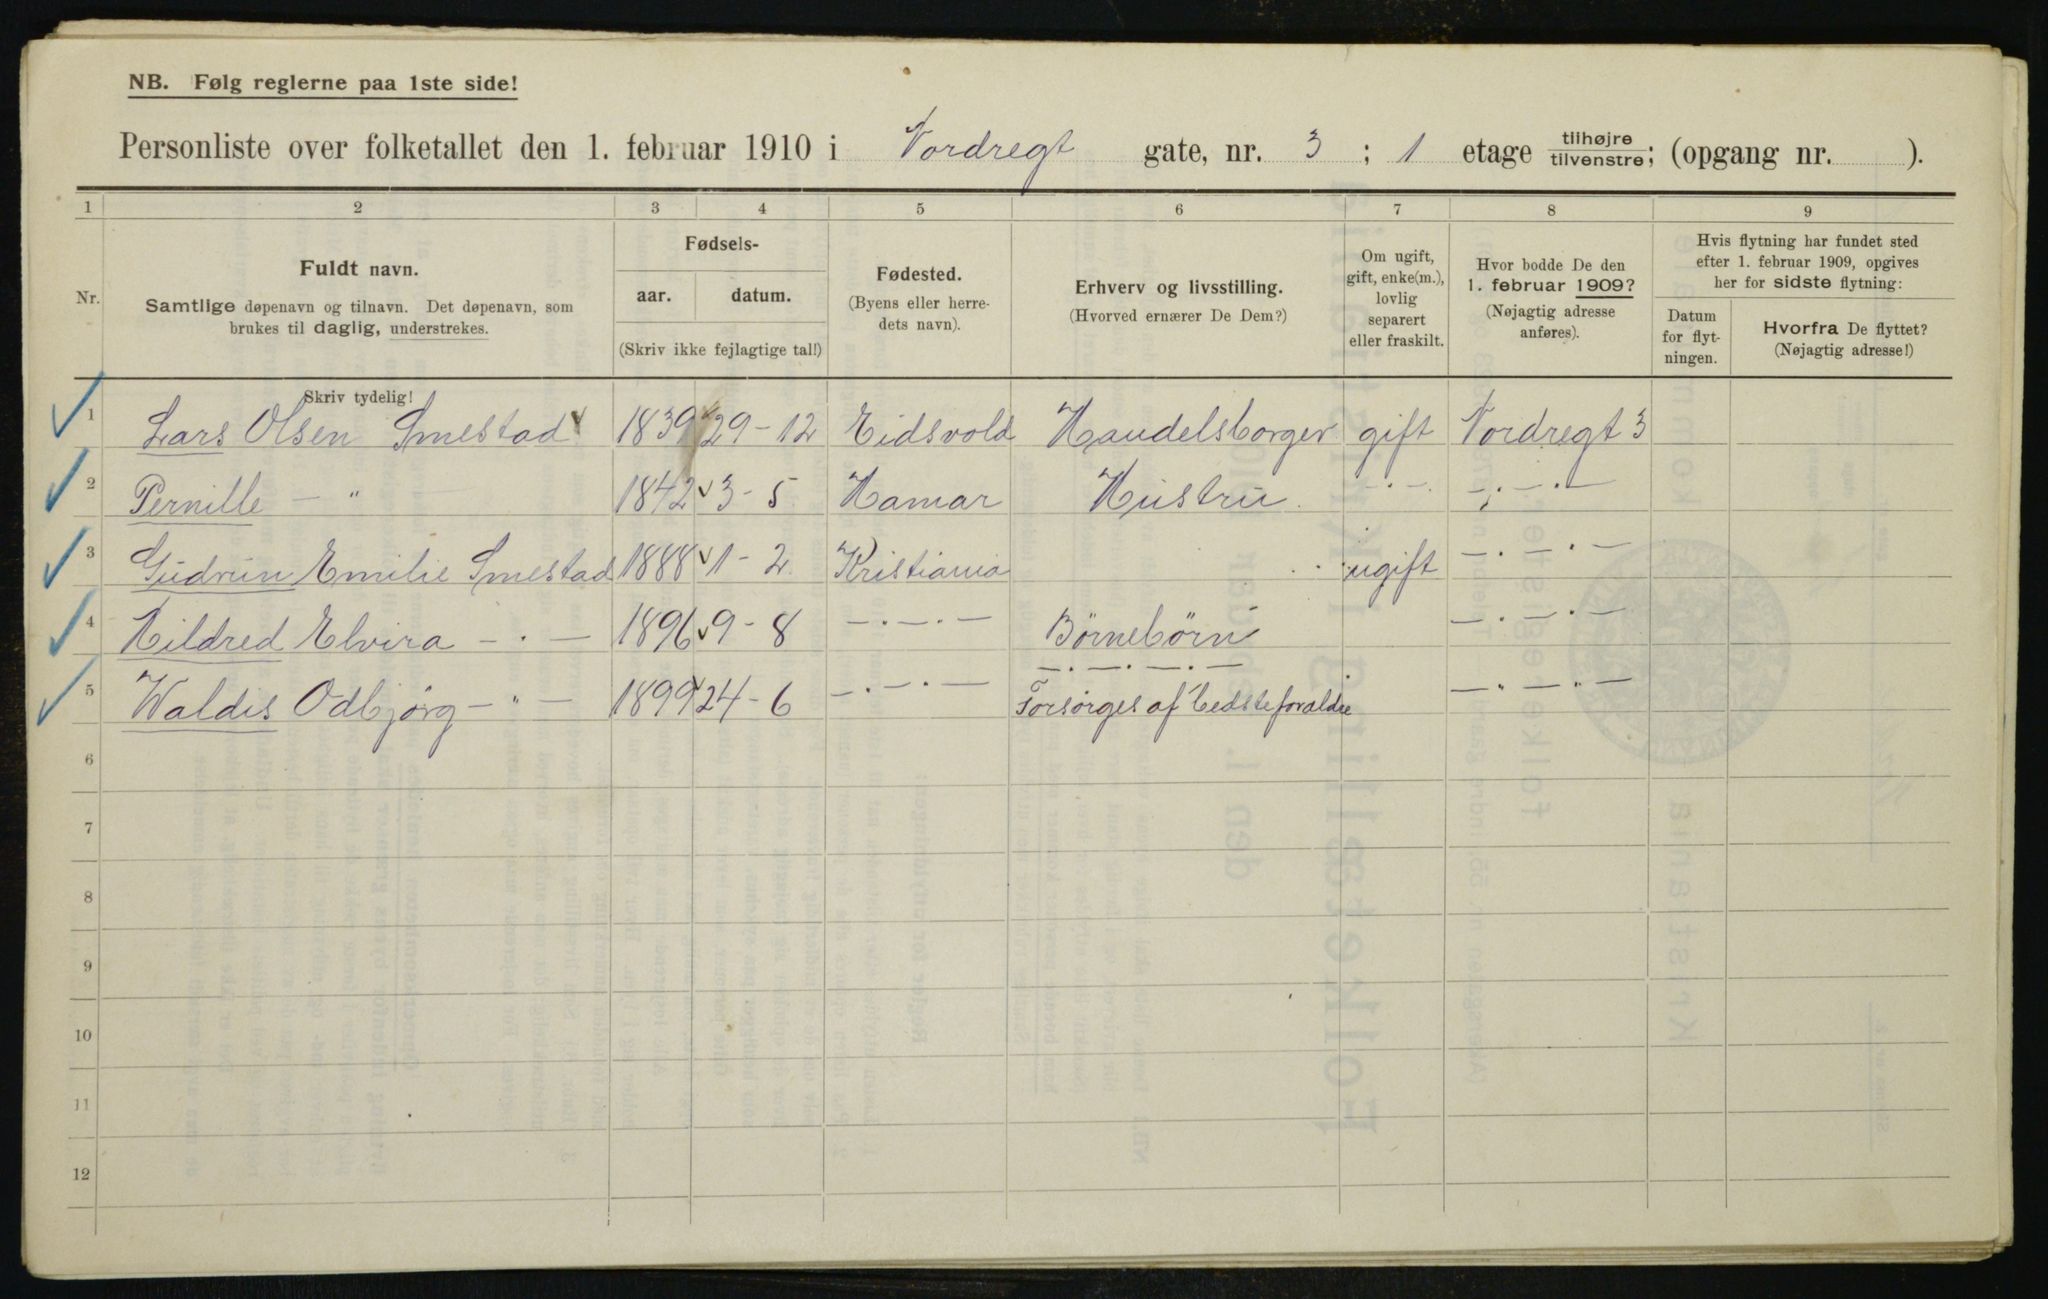 NB. Følg reglerne paa 1ste side!
Personliste over folketallet den 1. februar 1910 i Nordregt gate, nr. 3 ; 1 etage tilhøjre tilvenstre; (opgang nr. ).
1 2 3 4 5 6 7 8 9
Nr.
Fuldt navn.
Samtlige døpenavn og tilnavn. Det døpenavn, som
brukes til daglig, understrekes.
Fødsels-
aar. datum.
(Skriv ikke fejlagtige tal!)
Fødested.
(Byens eller herre-
dets navn).
Erhverv og livsstilling.
(Hvorved ernærer De Dem?)
Om ugift,
gift, enke(m.),
lovlig
separert
eller fraskilt.
Hvor bodde De den
1. februar 1909?
(Nøjagtig adresse
anføres).
Hvis flytning har fundet sted
efter 1. februar 1909, opgives
her for sidste flytning:
Datum
for flyt-
ningen.
Hvorfra De flyttet?
(Nøjagtig adresse!)
Skriv tydelig!
1 Lars Olsen Smestad 1839 29-12 Eidsvold Handelsborger gift Nordregt 3
2 Pernille — " 1842 3-5 Hamar Hustru —·—· —·—·—
3 Gudrun Emilie Smestad 1888 1-2 Kristiania ugift —·—·—
4 Hildred Elvira —·— 1896 9-8 —·—·— Børnebørn —·—·—
5 Waldis Odbjørg —"— 1899 24-6 —·—·— —·—·—·— —"—"—
Forsørges af bedsteforældre
6
7
8
9
10
11
12